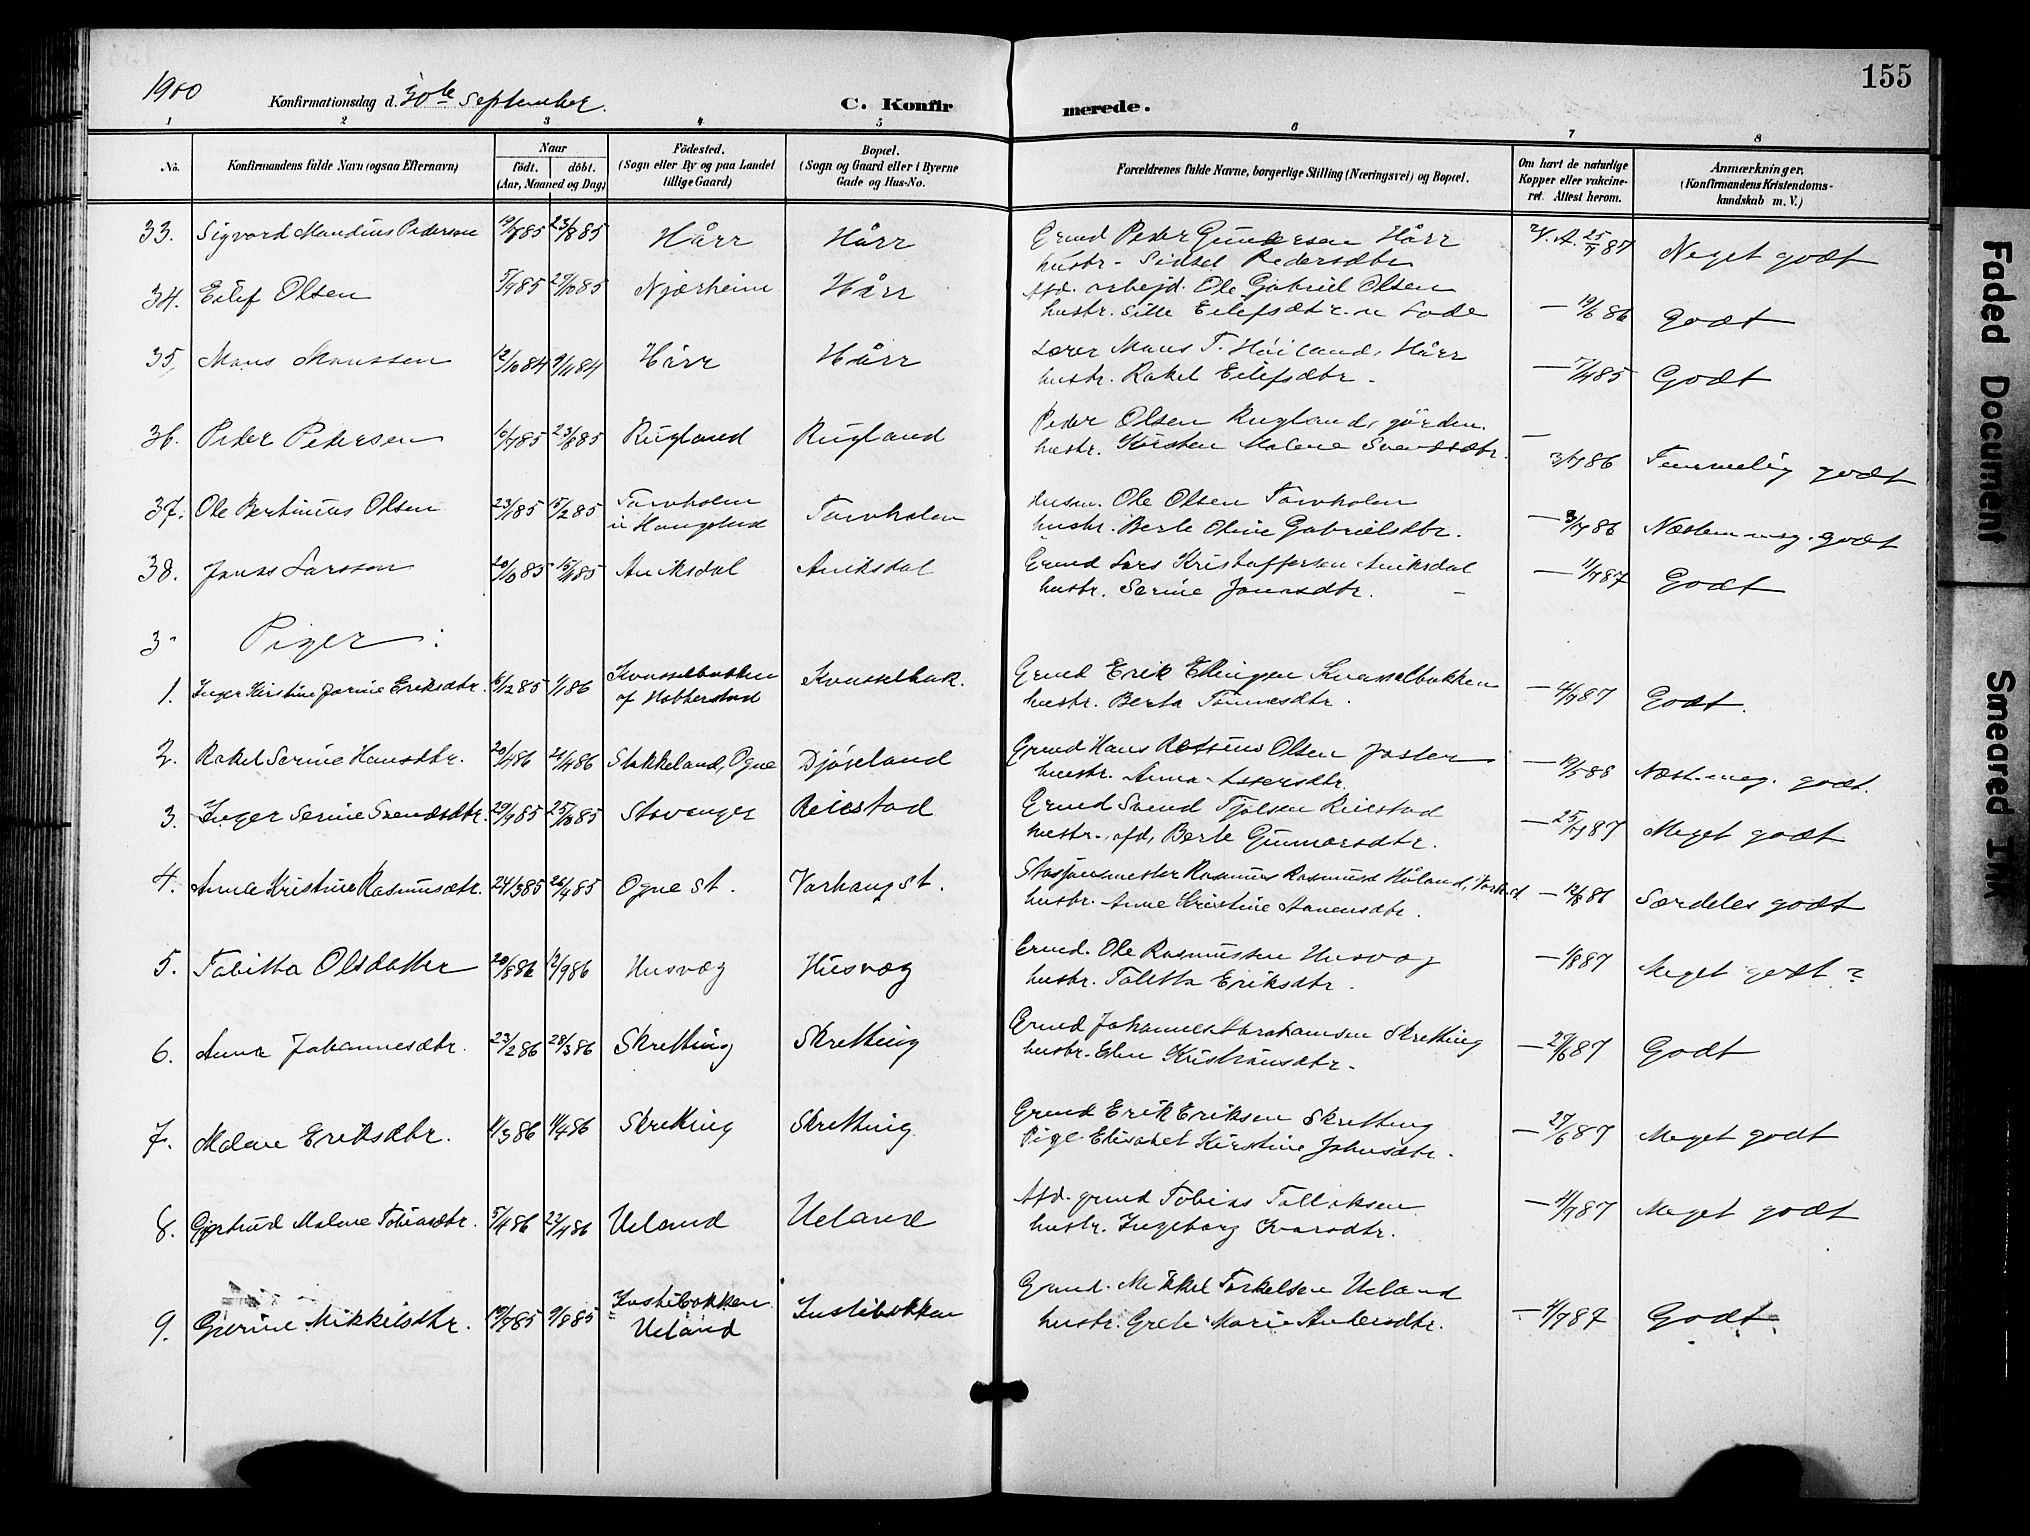 155
1900 Konfirmationsdag d. 30te September. C. Konfirmerede.
1 2 3 4 5 6 7 8
No. Konfirmandens fulde Navn (ogsaa Efternavn) Naar født. døbt. (Aar, Maaned og Dag) Fødested. (Sogn eller By og paa Landet tillige Gaard) Bopæl. (Sogn og Gaard eller i Byerne Gade og Hus-No. Forældrenes fulde Navne, borgerlige Stilling (Næringsvei) og Bopæl. Om havt de naturlige Kopper eller vakcineret. Attest herom. Anmærkninger. (Konfirmandens Kristendomskundskab m. V.)
33. Sigvard Mandius Pedersen 19/7 85 23/8 85 Hårr Hårr Grmd Peder Gundersen Hårr
hustr. Sidsel Pedersdtr V. A. 25/7 87 Meget godt
34. Eilef Olsen 5/9 85 27/10 85 Njærheim Hårr Afd. arbejd. Ole Gabriel Olsen
hustr. Sille Eilefsdtr. 19/6 86 Godt
35. Mons Monssen 12/10 84 9/11 84 Hårr Hårr Lærer Mons T. Høiland, Hårr
hustr. Rakel Eilefsdtr. 7/7 85 Godt
36. Peder Pedersen 16/7 85 23/8 85 Rugland Rugland Peder Olsen Rugland,
hustr. Kirsten Malene Svendsdtr. 3/7 86 Temmelig godt
37. Ole Bertinius Olsen 23/1 85 15/2 85 Torvholen
i Haugstad Torvholen Husm. Ole Olsen Torvholen
hustr. Berte Oline Gabrielsdtr. — 3/7 86 Næsten meg. godt
38. Jonas Larsson 20/10 85 15/11 85 Aniksdal Aniksdal Grmd Lars Kristoffersen Aniksdal
hustr. Serine Jonasdtr. — 11/7 87 Godt
Piger:
1. Inger Kirstine Jorine Eriksdtr. 6/12 85 1/1 86 Kvasselbakken
af Hobberstad Kvasselbak. Grmd Erik Ellingsen Kvasselbakken
hustr. Berta Tønnesdtr. — 4/7 87 Godt.
2. Rakel Serine Hansdtr. 20/4 86 26/4 86 Stokkeland, Ogne Djøveland Grmd Hans Olsen
hustr. Anna Assersdtr. — 19/5 88 Næst. meg. godt.
3. Inger Serine Svendsdtr. 29/9 85 25/10 85 Stavanger Reiestad Grmd Svend Reiestad
hustr. afd. Berte Gunnarsdtr. — 25/7 87 Meget godt
4. Anne Kristine Rasmusdtr. 24/3 85 26/4 85 Ogne st. Varhaug st. Stasjonsmester Rasmus Rasmussen Håland,
hustr. Anne Kristine Aanensdtr. — 12/8 86 Særdeles godt
5. Tabitta Olsdatter 20/8 86 12/9 86 Husvæg Husvæg Grmd. Ole Rasmussen Husvæg
hustr. Talitta Eriksdtr. — 1/8 87 Meget godt?
6. Anna Johannesdtr. 23/2 86 28/3 86 Skretting Skretting Grmd Johannes Abrahamsen Skretting
hustr. Elen Kristiansdtr. — 27/6 87 Godt
7. Malene Eriksdtr. 1/3 86 11/4 86 Skretting Skretting Grmd Erik Eriksen Skretting
Pige Elisabet Kirstine Johnsdtr. — 27/6 87 Meget godt
8. Gjertrud Malene Tobiasdtr. 5/4 86 23/4 86 Ueland Ueland Afd. grmd Tobias Tollaksen
hustr. Ingeborg Ivarsdtr. — 4/7 87 Meget godt
9. Gjerine Mikkelsdtr. 19/7 85 9/8 85 Instebakken
Ueland Instebakken Grmd. Mikkel Torkelsen Ueland
hustr. Grete Marie Andersdtr. — 4/7 87 Godt
Faded Document
Smeared Ink